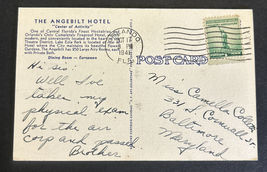 THE ANGEBILT HOTEL
"Center of Activity"
One of Central Florida's Finest Hostelries
Orlando's Only Completely Fireproof Hotel,
modern, and conveniently located in the heart of the
Theatre District. Lake Eola Park is one of
the Hotel where the City maintains its beautiful
The Angebilt has 250 Large Airy Rooms
with Private Bath.
Dining Room — European
ORLANDO
PM
194
FLA
POST CARD
Hi sis.
Well I've
taken my
physical exam
for the air
corp and passed
Brother.
Miss Camella
331 S. Cornwall St.
Baltimore
Maryland